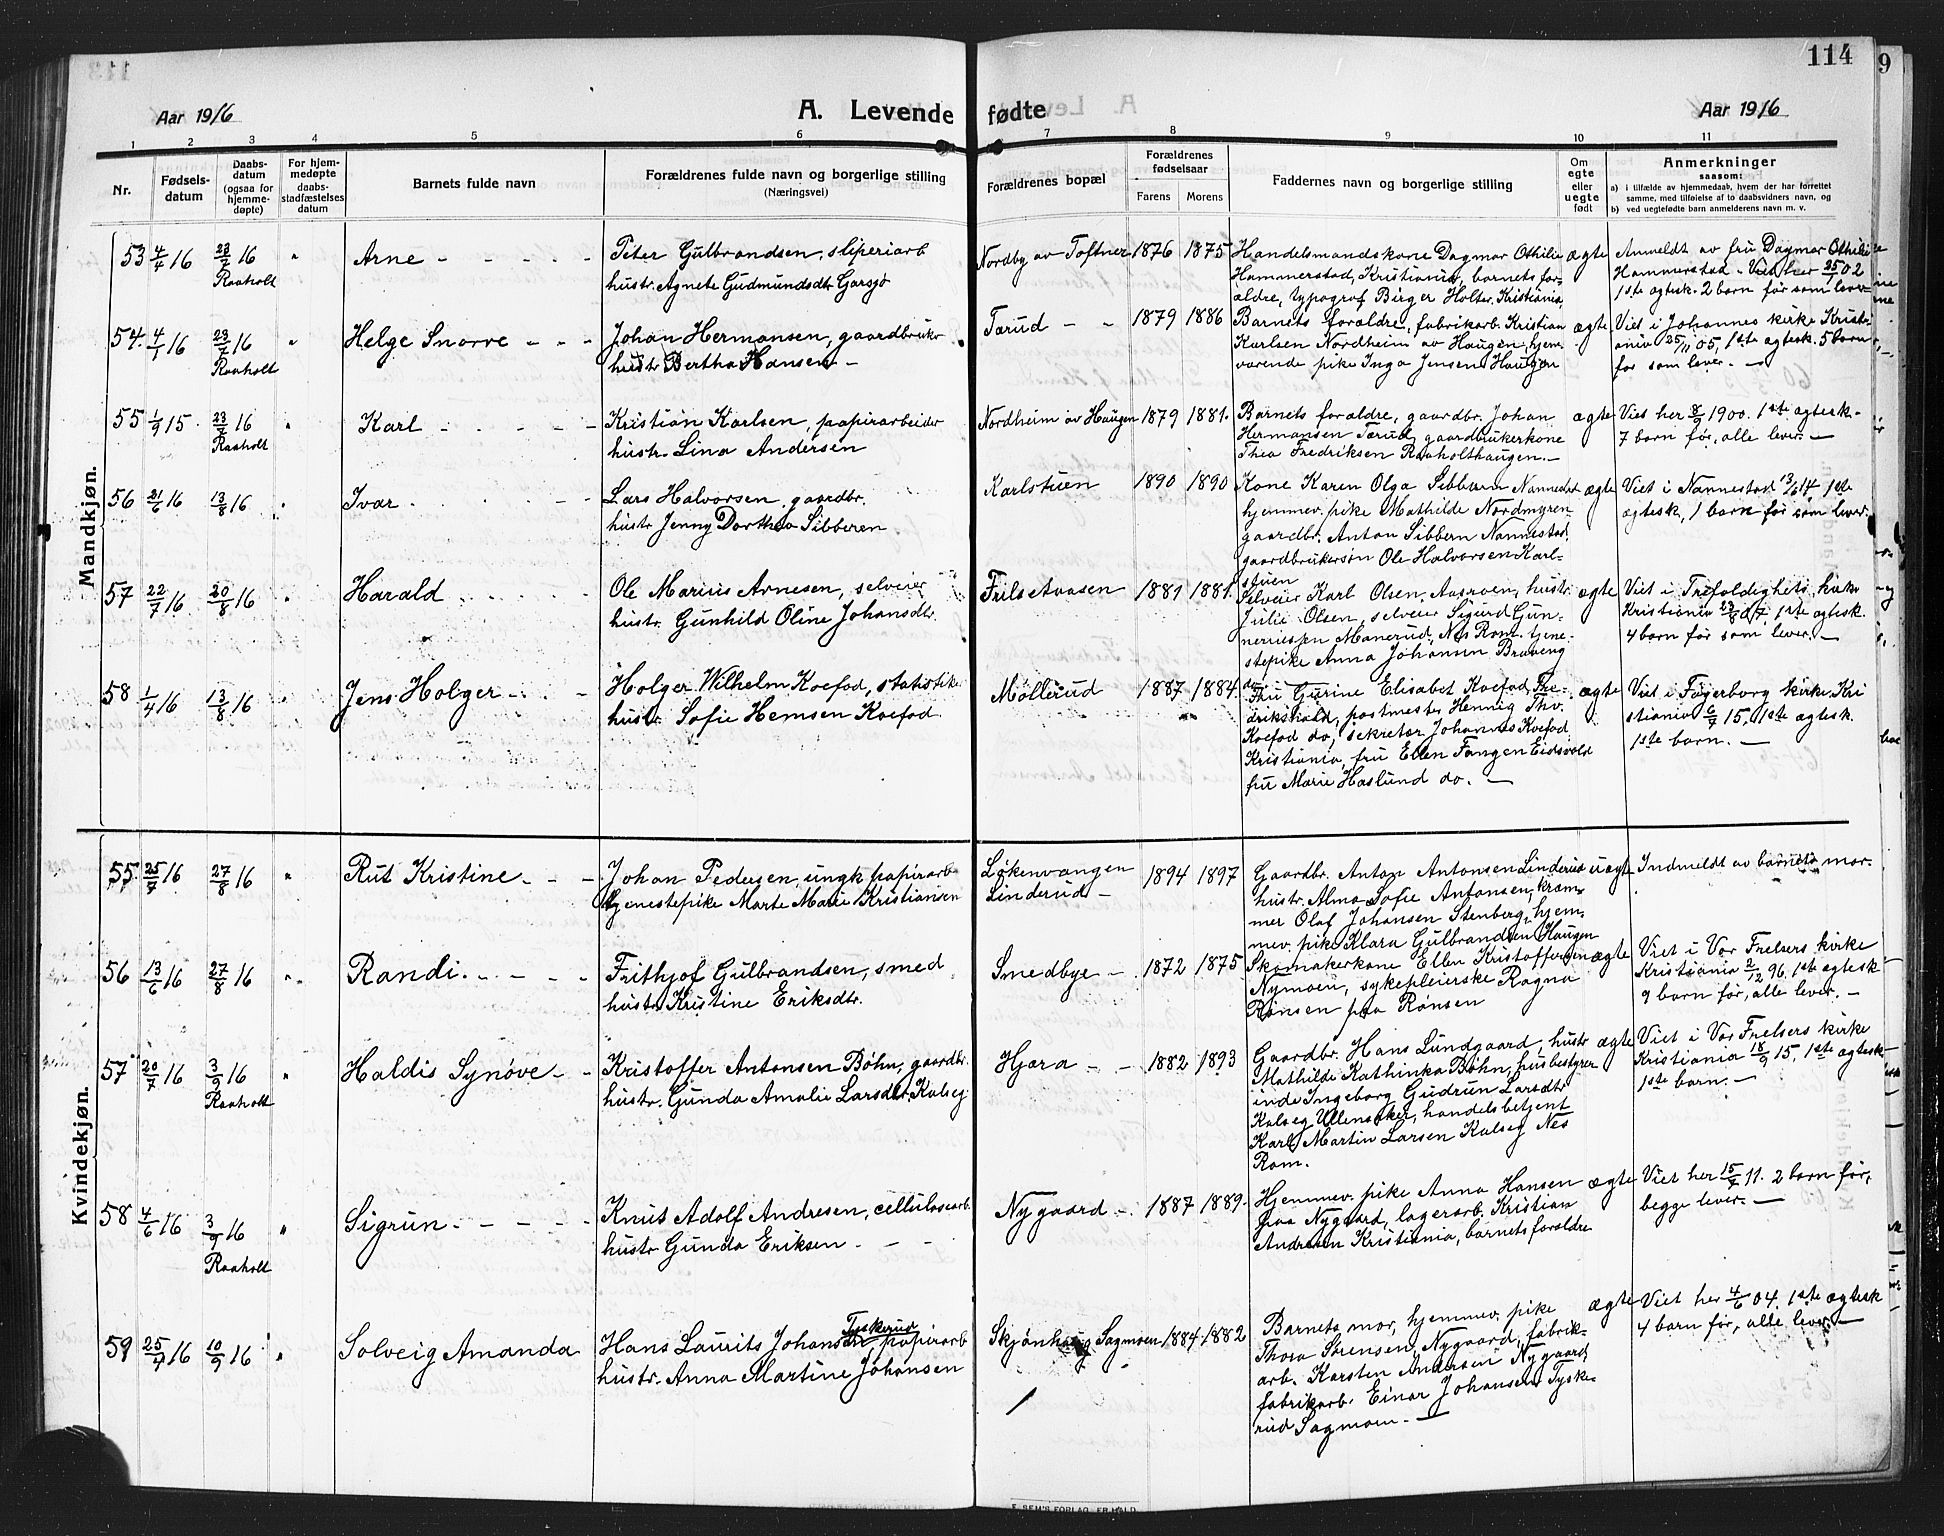 114
9
Aar 1916 A. Levende fødte Aar 1916
1 2 3 4 5 6 7 8 9 10 11
Nr.
Fødsels-
datum
Daabs-
datum
(ogsaa for
hjemme-
døpte)
For hjem-
medøpte
daabs-
stadfæstelses
datum
Barnets fulde navn
Forældrenes fulde navn og borgerlige stilling
(Næringsvei)
Forældrenes bopæl
Forældrenes
fødselsaar
Farens Morens
Faddernes navn og borgerlige stilling
Om
egte
eller
uegte
født
Anmerkninger
saasom:
a) i tilfælde av hjemmedaab, hvem der har forrettet
samme, med tilføielse af to daabsvidners navn, og
b) ved uegtefødte barn anmelderens navn m. v.
Mandkjøn.
53 4/4 16 23/7 16 " Arne - - - - -
Raaholt
Peter Gulbrandsen, sliperiarb
hustr. Agnete Gudmundsdtr Garsjø
Nordby av Toftner 1876 1875
Handelsmandskone Dagmar Othilie
Hammerstad, Kristiania, barnets for-
ældre, typograf Birger Holter, Kristiania
ægte
Anmeldt av fru Dagmar Othilie
Hammerstad - Viet her 25/5 02
1ste ægtesk. 2 barn før som lever
54. 4/1 16 23/7 16 " Helge Snorre - - -
Raaholt
Johan Hermansen, gaardbruk-
hustr Bertha Hansen -
Tærud - - 1879 1886
Barnets forældre, fabrikarb. Kristian
Karlsen Nordheim av Haugen, hjem
værende pike Inga Jensen Haugen
ægte
Viet i Johannes kirke Kristi-
ania 25/11 05, 1ste ægtesk. 5 barn
før som lever. -
55 1/9 15. 23/7 16 " Karl - - - - -
Raaholt
Kristian Karlsen, papirarbeider
hustr. Lina Andersen
Nordheim av Haugen 1879 1881.
Barnets forældre, gaardbr. Johan
Hermansen Tærud, gaardbrukerkone
Thea Fredriksen Raaholthaugen. -
ægte
Viet her 8/9 1900. 1ste ægtesk-
7 barn før, alle lever. -
56 21/6 16 13/8 16 " Ivar - - - -
Lars Halvorsen, gaardbr.
hustr Jenny Dorthea Sibberen
Karlstuen 1890 1890
Kone Karen Olga Sibbern Nannestad
hjemmev. pike Mathilde Nordmyren
gaardbr. Anton Sibbern Nannestad.
gaardbrukersøn Ole Halvorsen Karl-
stuen
ægte
Viet i Nannestad 13/6 14 1ste
ægtesk, 1 barn før som lever.
57 22/7 16 20/8 16 " Harald - - - -
Ole Marius Arnesen, selveier
hustr. Gunhild Oline Johansdtr.
Frilset aasen 1881 1881.
Selveier Karl Olsen, Aasroen, hustr
Julie Olsen, selveier Sigurd Gun-
neriussen Manerud, Nes Rom. tjene-
stepike Anna Johansen Bruveng
do
ægte
Viet i Trefoldighets kirke
Kristiania 23/8 07. 1ste ægtesk.
4 barn før som lever. -
58 1/4 16 13/8 16 " Jens Holger - - -
Holger Wilhelm Koefod, statistike
hustr. Sofie Hemsen Koefod
Møllerud 1887 1884.
Fru Gurine Elisabet Koefod, Fre-
drikshald, postmester Hennig Thv.
Koefod do, sekretær Johannes Koefod
Kristiania, fru Ellen Fangen Eidsvold
fru Marie Haslund do. -
ægte
Viet i Fagerborg kirke Kri
stiania 6/7 15, 1ste ægtesk.
1ste barn. -
Kvindekjøn.
55 25/7 16 27/8 16 " Rut Kristine - - -
Johan Pedersen, ungk. papirarb-
tjenestepike Marte Marie Kristiansen
Løkenvangen
Linderud - 1894 1897
Gaardbr. Anton Antonsen Linderud
hustr. Alma Sofie Antonsen, kram-
mer Olaf Johansen Stenberg, hjem-
mev. pike Klara Gulbrandsen Haugen
uægte
Indmeldt av barnets mor.
56 13/6 16 27/8 16 " Randi. - - - -
Frithjof Gulbrandsen, smed
hustr Kristine Eriksdtr.
Smedbye - 1872 1875
Skomakerkone Ellen Kristoffersen
Nymoen, sykepleierske Ragna
Rønsen paa Rønsen
ægte
Viet i Vor Frelsers kirke
Kristiania 2/12 96. 1ste ægtesk
9 barn før, alle lever. -
57 20/7 16 3/9 16 " Haldis Synøve - -
Raaholt
Kristoffer Antonsen Bøhn, gaardbr.
hustr. Gunda Amalie Larsdtr. Kulseg
Hjæra - - 1882 1893
Gaardbr. Hans Lundgaard, hustr
Mathilde Kathinka Bøhn, husbestyrer
inde Ingeborg Gudrun Larsdtr
Kulseg Ullensaker, handelsbetjent
Karl Martin Larsen Kulseg Nes
Rom.
ægte
Viet i Vor Frelsers kirke
Kristiania 18/9 15, 1ste ægtesk-
1ste barn. -
58 4/6 16 3/9 16 " Sigrun. - - - -
Raaholt
Knut Adolf Andresen, cellulosearb.
hustr Gunda Eriksen - - -
Nygaard - 1887 1889.
Hjemmev. pike Anna Hansen
paa Nygaard, lagerarb. Kristian
Andresen Kristiania, barnets forældre
ægte
Viet her 15/7 11. 2 barn før,
begge lever. -
59 25/4 16 10/9 16 " Solveig Amanda
Tyskerud
Hans Lauits Johansen, papirarb
hustr. Anna Martine Johansen
Skjønhaug Sagmoen 1884 1882
Barnets mor, hjemmev. pike
Thora Sørensen, Nygaard, fabrik-
arb. Karsten Andersen Nygaard
fabrikarb. Einar Johansen Tyske-
rud Sagmoen. -
ægte
Viet her 4/6 04. 1ste ægtesk
4 barn før, alle lever. -